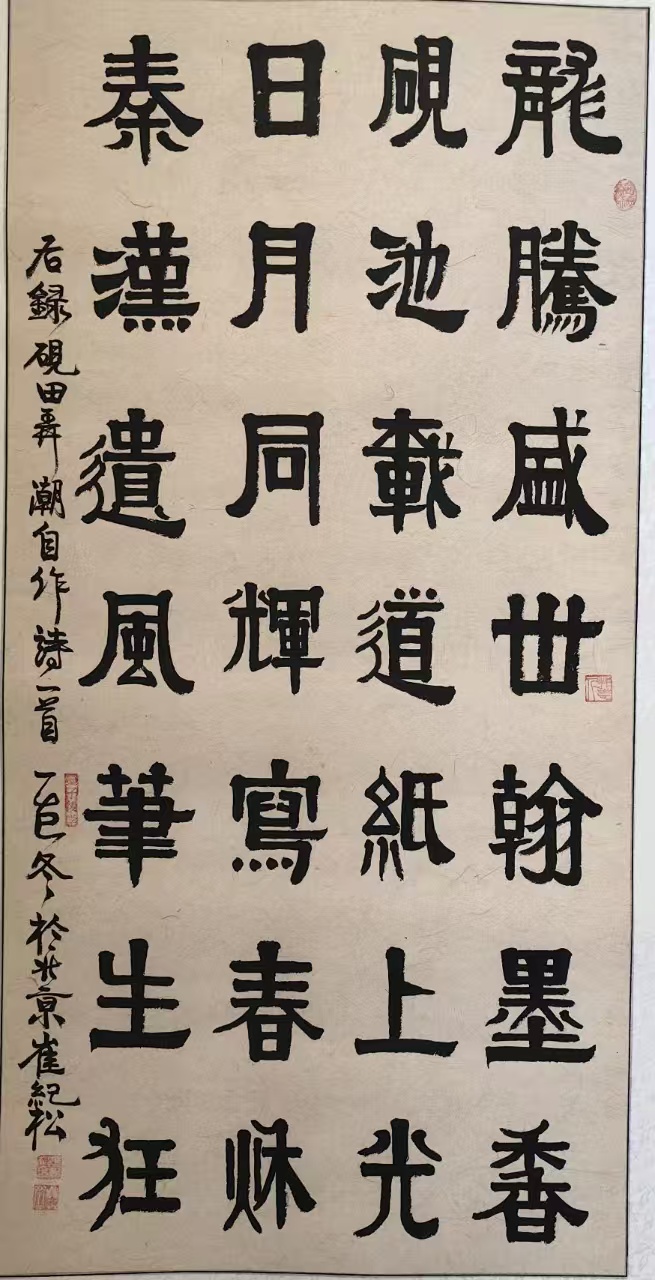 龍騰盛世翰墨香
硯池載道紙上光
日月同輝寫春秌
秦漢遺風筆生狂
右録硯田弄潮自作詩一首 乙巳冬於北京崔紀松